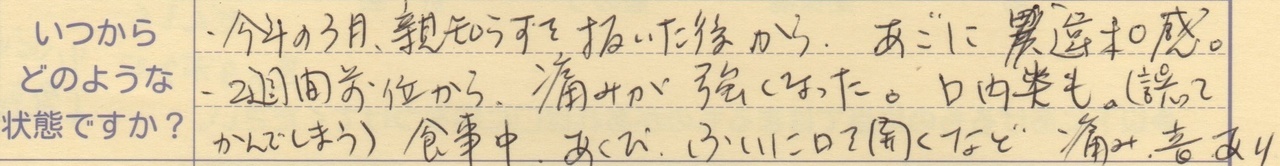 いつから
どのような
状態ですか？
・今年の3月、親知らずを抜いた後から、あごに違和感。
・2週間前位から、痛みが強くなった。口内炎も。(誤って
かんでしまう) 食事中、あくび、ふいに口を開くなど 痛み、音あり